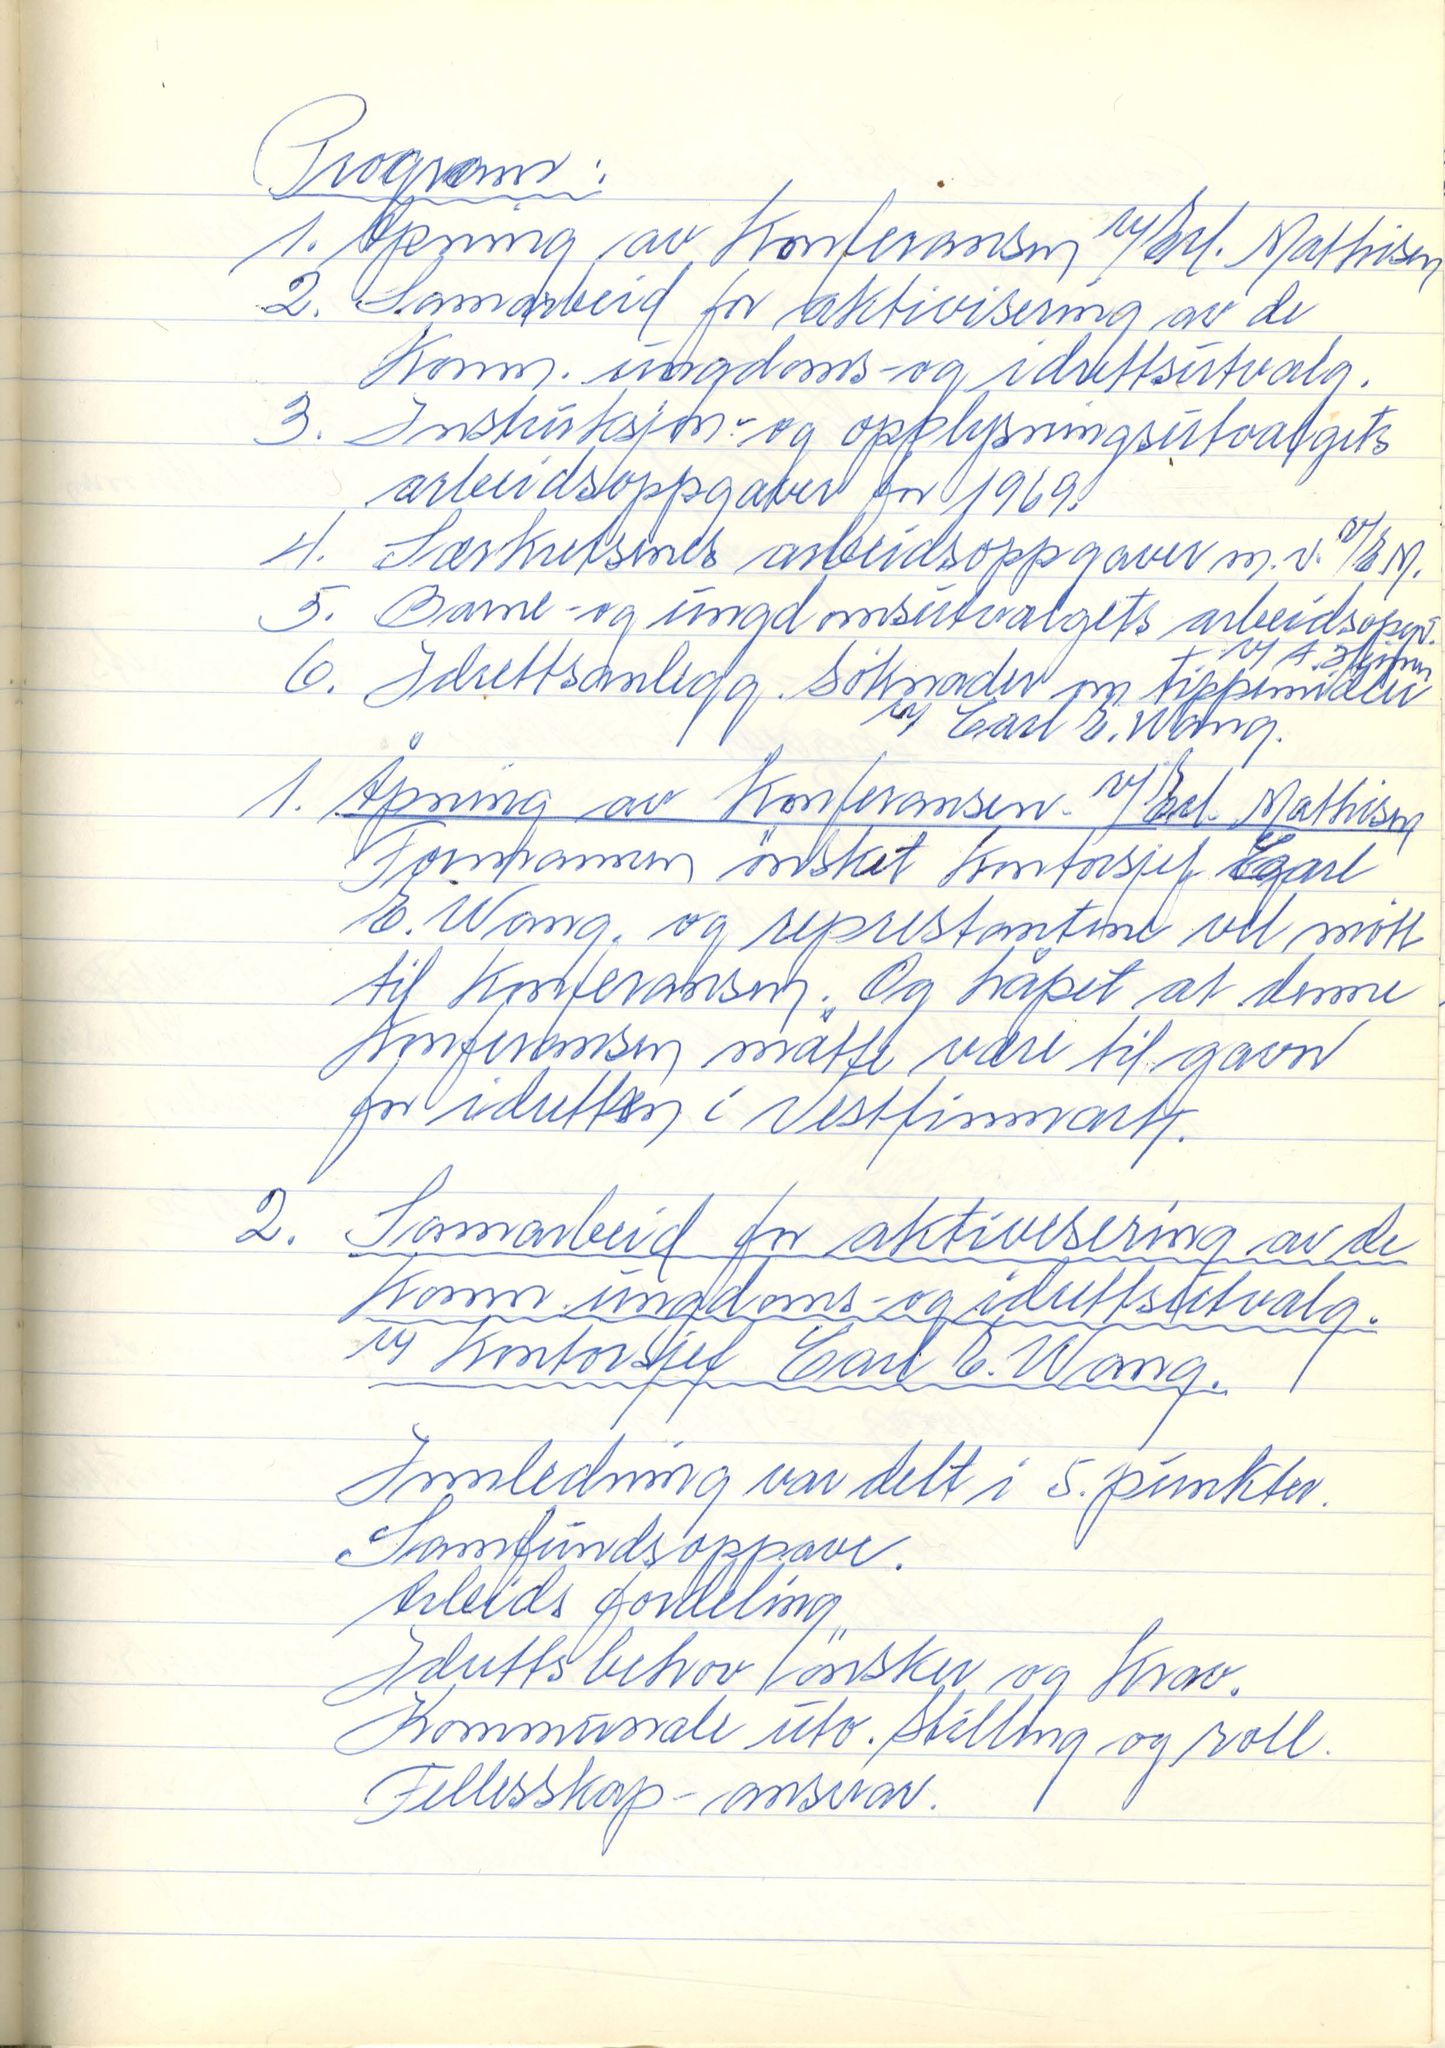 Program:
1. Åpning av Konferansen v/Erl. Mathisen
2. Samarbeid for aktivisering av de
Komm. ungdoms- og idrettsutvalg.
3. Instruksjon- og opplysningsutvalgets
arbeidsoppgaver for 1969.
4. Særkretsenes arbeidsoppgaver m.v. v/E M.
5. Barne- og ungdomsutvalgets arbeidsoppg.
v/ A.
6. Idrettsanlegg. Söknader om tippemidler
v/ Carl E. Wang.
1. Åpning av Konferansen. v/Erl. Mathisen
Formannen önsket Kontorsjef Carl
E. Wang. og represtantene vel mött
til Konferansen. Og håpet at denne
Konferansen måtte være til gavn
for idretten i Vestfinnmark.
2. Samarbeid for aktivesering av de
Komm. ungdoms- og idrettsutvalg.
v/ Kontorsjef Carl E. Wang.
Innledning var delt i 5. punkter.
Samfundsoppave.
Arbeids fordeling
Idrettsbehov önsker og Krav.
Kommunale utv. Stilling og roll.
Fellesskap - ansvar.